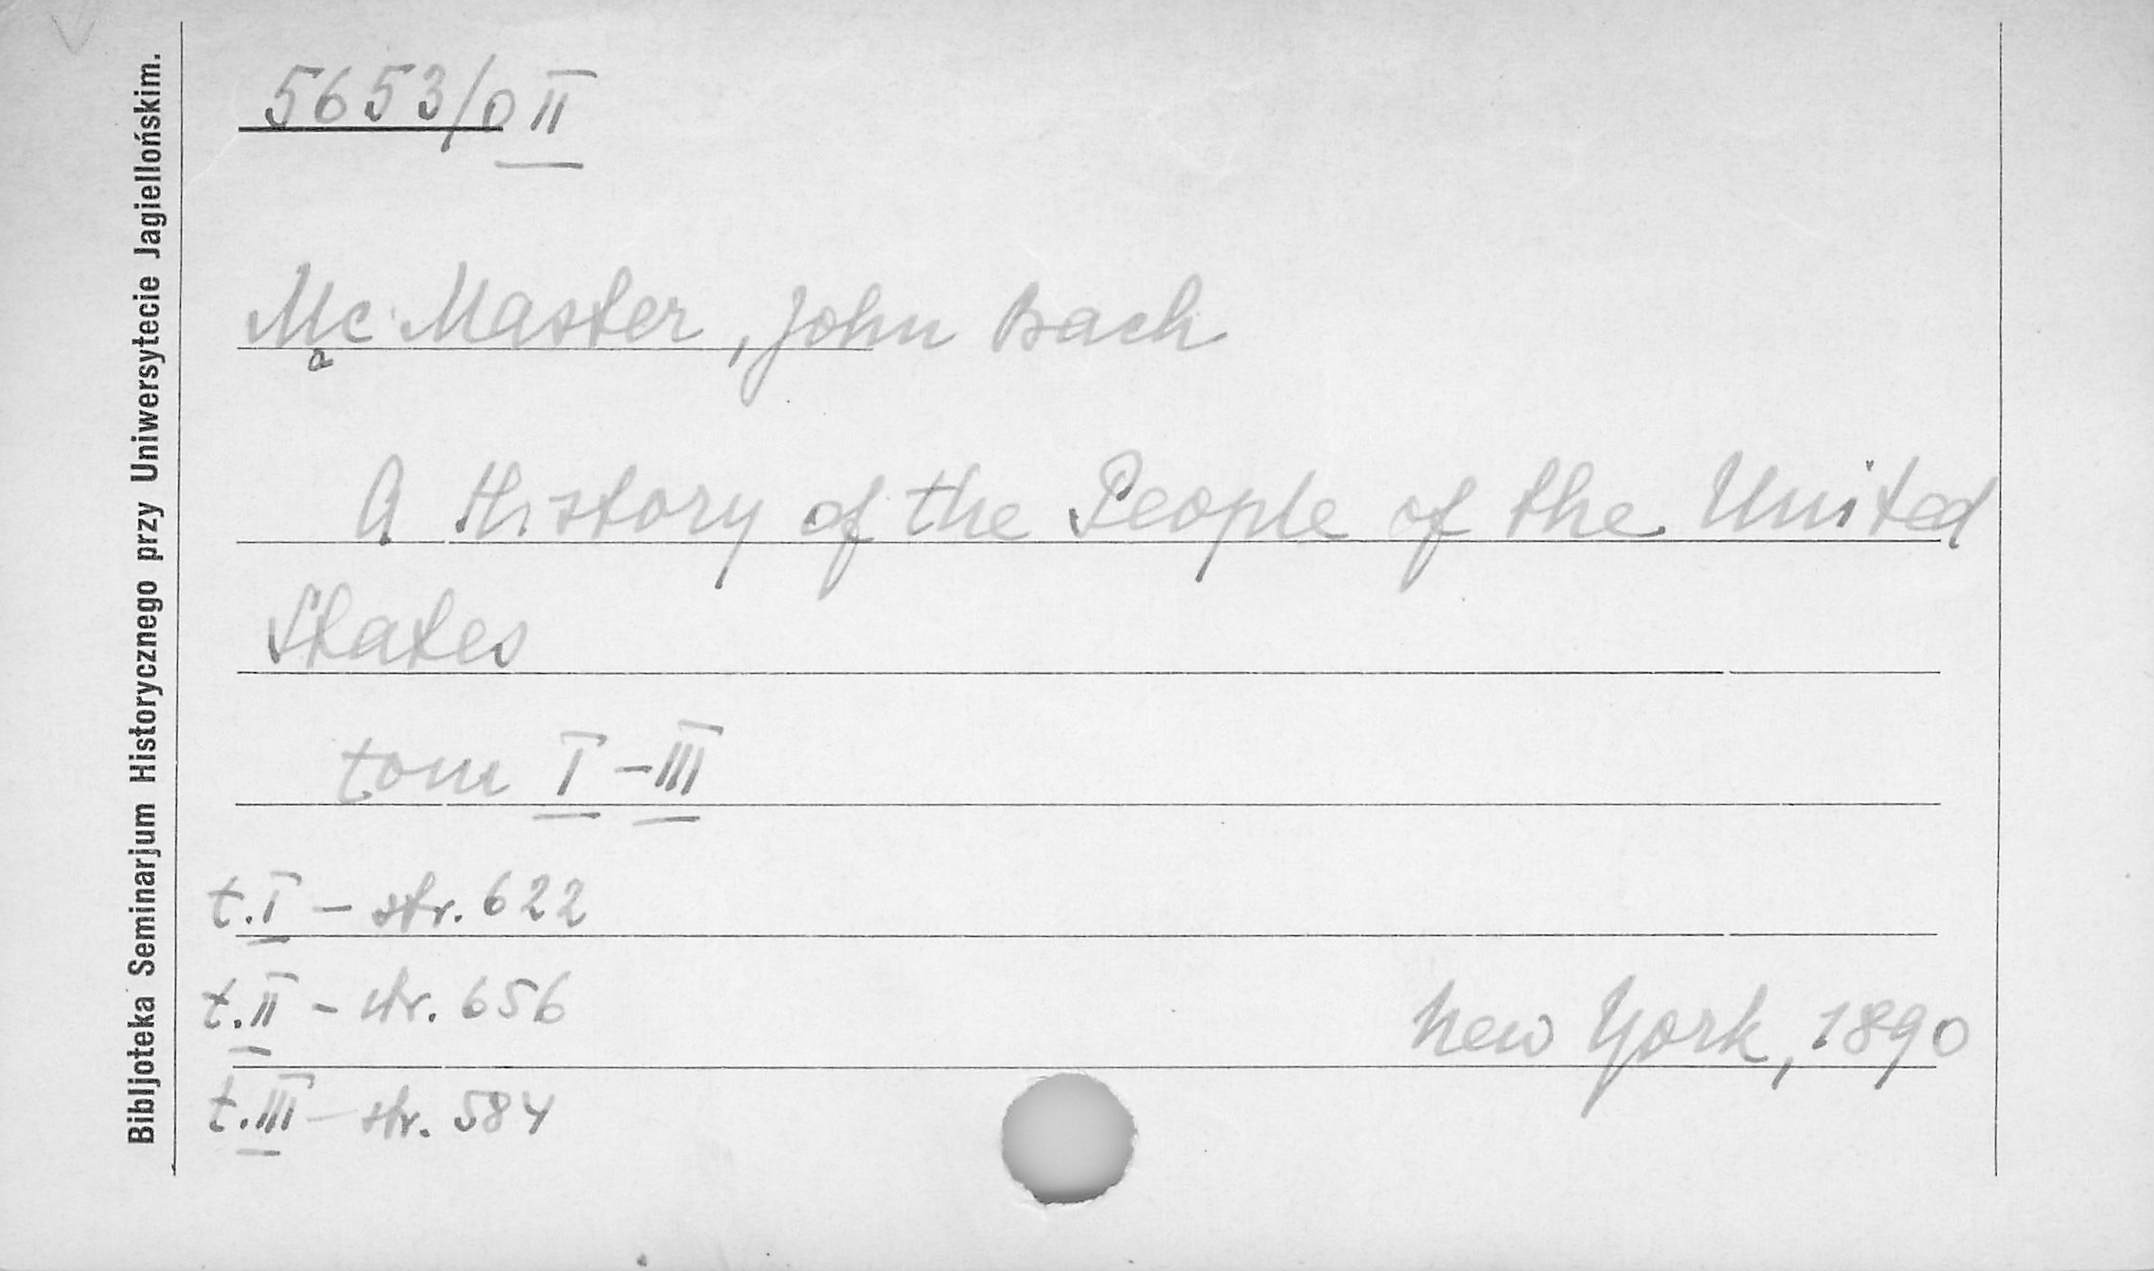 Bibljoteka Seminarjum Historycznego przy Uniwersytecie Jagiellońskim.
5653/0 II
Mc Master, John Bach
a
A History of the People of the United
States
tom I - III
t. I - str. 622
t. II - str. 656
New York, 1890
t. III - str. 584